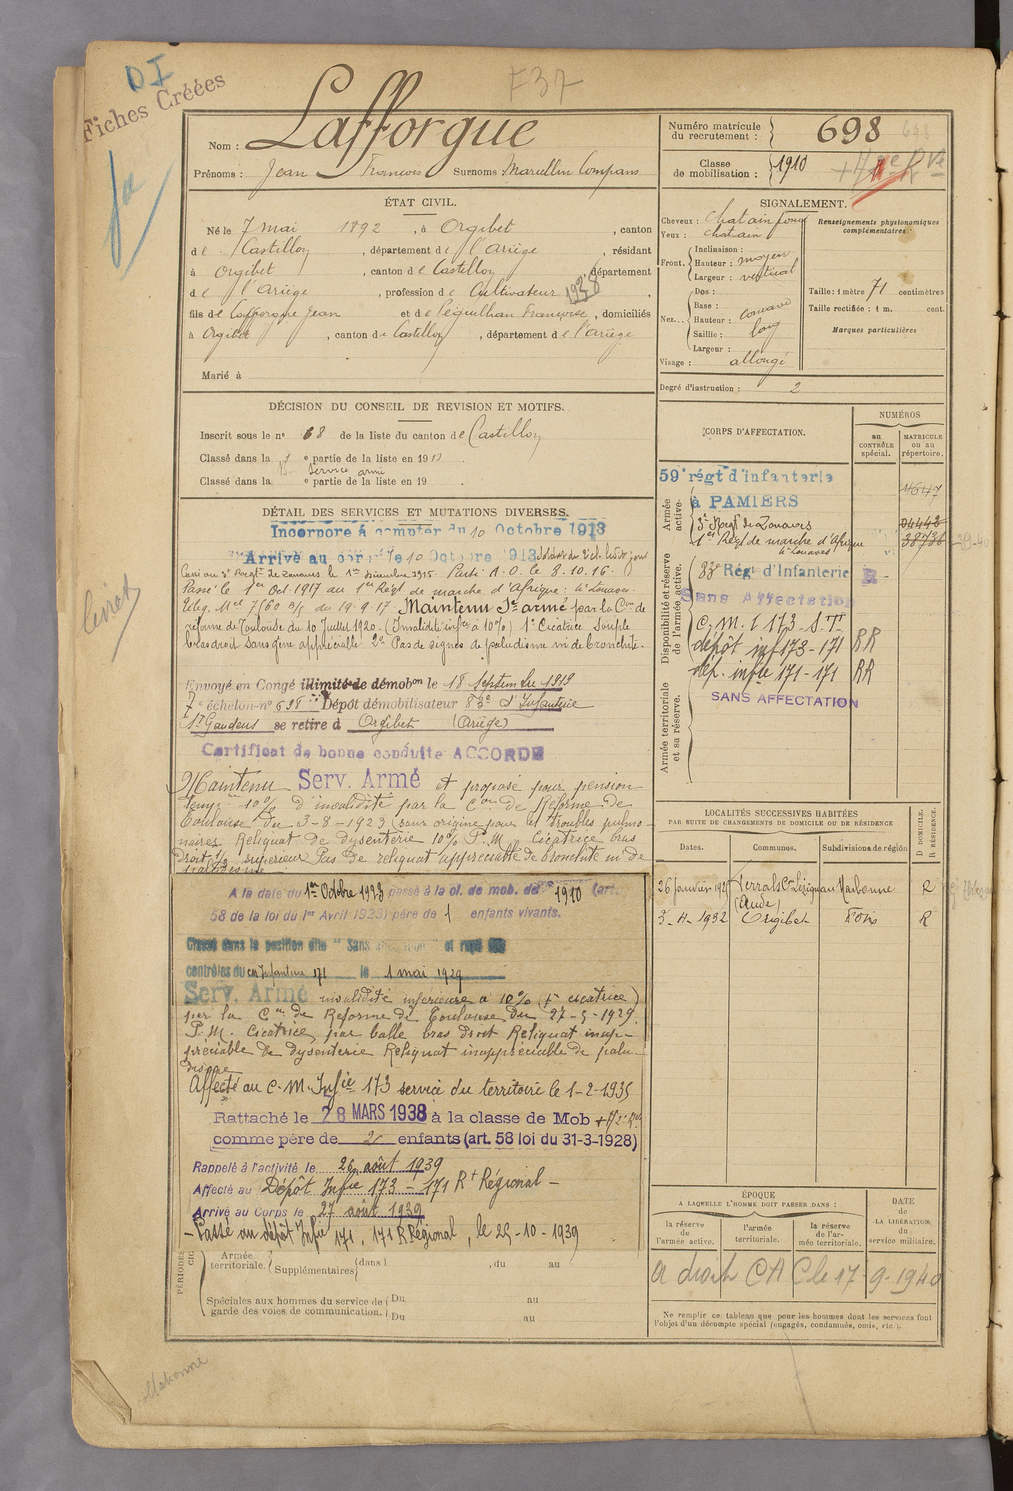 DI
Fiches Créées
F37
Nom : Lafforgue
Prénoms : Jean François Surnoms Marcellin Compans
ÉTAT CIVIL.
Né le 7 mai 1892, à Orgibet, canton
de Castillon, département de l'Ariège, résidant
à Orgibet, canton de Castillon, département
de l'Ariège, profession de Cultivateur
fils de Lafforgue Jean et de Françoise, domiciliés
à Orgibet, canton de Castillon, département de l'ariège
Marié à
DÉCISION DU CONSEIL DE REVISION ET MOTIFS.
Inscrit sous le n° 68 de la liste du canton de Castillon
Classé dans la 1 e partie de la liste en 1912.
Service armé
Classé dans la e partie de la liste en 19 .
DÉTAIL DES SERVICES ET MUTATIONS DIVERSES.
Incorporé à compter du 10 Octobre 1913
Arrivé au corps le 10 Octobre 1913. Soldat de 2e cl. les dits jours
Passé au 3e Régt de Zouaves le 1er décembre 1915. Parti A.O. le 8.10.16.
Passé le 1er Oct. 1917 au 1er Régt de marche d'Afrique
du 19.9.17 Maintenu Sce armé par la Con de
réforme de Toulouse du 10 Juillet 1920. (Invalidité infre à 10%) 1° Cicatrice souple
bras droit sans gêne appréciable 2° Pas de signes de paludisme ni de bronchite.
Envoyé en Congé illimité de démobon le 18 Septembre 1919
7e échelon n° 698 Dépôt démobilisateur 83e d'Infanterie
St Gaudens se retire à Orgibet (Ariège)
Certificat de bonne conduite ACCORDÉ
Maintenu Serv. Armé et proposé pour pension
tempre 10% d'invalidité par la Con de Réforme de
Toulouse du 3-8-1923 (sans origine pour les troubles pulmo-
naires. Reliquat de dysenterie 10% P.M. Cicatrice bras
droit 1/3 supérieur Pas de reliquat appréciable de bronchite ni de
paludisme
A la date du 1er Octobre 1923 passé à la cl. de mob. de 1910 (art.
58 de la loi du 1er Avril 1923) père de 1 enfants vivants.
Classé dans la position dite "Sans affectation" et rayé des
contrôles du cm Infanterie 171 le 1 mai 1929
Serv. Armé invalidité inférieure à 10% (f. cicatrice)
par la Con de Réforme de Toulouse du 27-5-1929.
P.M. Cicatrice par balle bras droit Reliquat inap-
préciable de dysenterie Reliquat inappréciable de palu-
disme
Affecté au C.M. Infie 173 service du territoire le 1-2-1935
Rattaché le 28 MARS 1938 à la classe de Mob
comme père de 2 enfants (art. 58 loi du 31-3-1928)
Rappelé à l'activité le 26 août 1939
Affecté au Dépôt Infie 173 - 171 Rt Régional -
Arrivé au Corps le 27 août 1939
- Passé au dépôt Infie 171, 171 R Régional, le 25-10-1939
Armée territoriale. Supplémentaires (dans l , du au
Spéciales aux hommes du service de garde des voies de communication. Du au
Du au
Numéro matricule du recrutement : 698
Classe de mobilisation : 1910
SIGNALEMENT.
Cheveux : chatain foncé
Yeux : chatain
Front. Inclinaison :
Hauteur : moyen
Largeur : vertical
Nez... Dos :
Base :
Hauteur : concave
Saillie : long
Largeur :
Visage : allongé
Renseignements physionomiques complémentaires :
Taille : 1 mètre 71 centimètres
Taille rectifiée : 1 m. cent.
Marques particulières
Degré d'instruction : 2
CORPS D'AFFECTATION.
NUMÉROS
au CONTRÔLE spécial.
MATRICULE ou au répertoire.
Armée active.
59e régt d'infanterie
à PAMIERS
3e Régt de Zouaves
1er Régt de marche d'Afrique
38736
Disponibilité et réserve de l'armée active.
83e Régt d'Infanterie R
Sans Affectation
C.M.I 173-S.T.
dépôt inf 173-171 RR
dép. infie 171-171 RR
Armée territoriale et sa réserve.
SANS AFFECTATION
LOCALITÉS SUCCESSIVES HABITÉES
PAR SUITE DE CHANGEMENTS DE DOMICILE OU DE RÉSIDENCE
Dates. Communes. Subdivisions de région
D DOMICILE. R RÉSIDENCE.
Ferrals Cn Lézignan (Aude) Narbonne R
3-4-1932 Orgibet Foix R
ÉPOQUE
A LAQUELLE L'HOMME DOIT PASSER DANS :
la réserve de l'armée active.
l'armée territoriale.
la réserve de l'armée territoriale.
DATE de LA LIBÉRATION du service militaire.
a droit CA C le 17-9-1940
Ne remplir ce tableau que pour les hommes dont les services font
l'objet d'un décompte spécial (engagés, condamnés, omis, etc.).